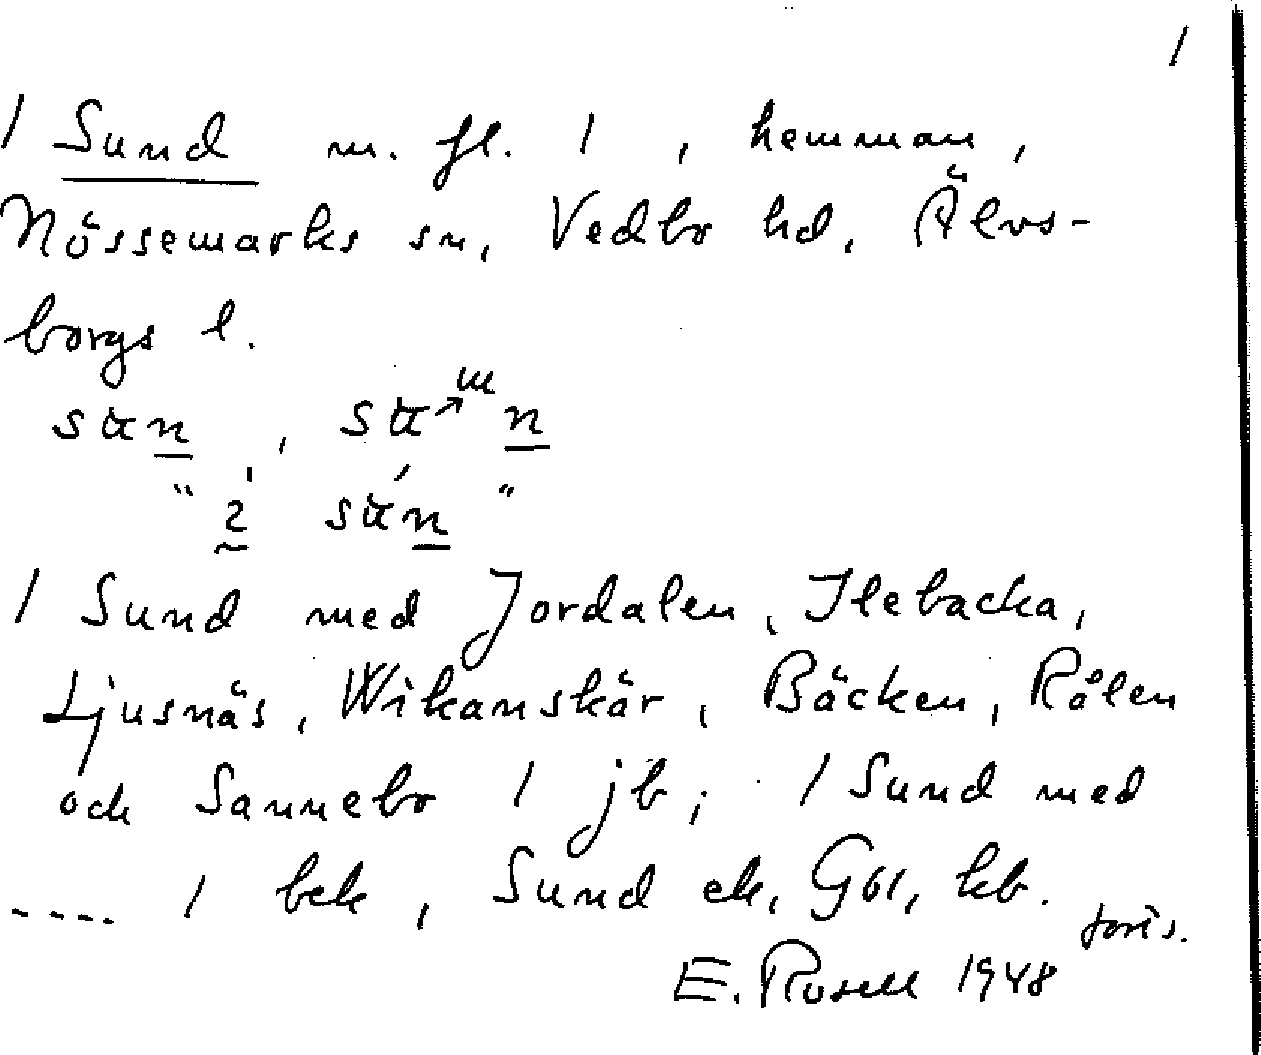 1
1 Sund m. fl. 1, hemman,
Nössemarks sn, Vedbo hd, Älvs-
borgs l.
1 Sund med Jordalen, Ilebacka,
Ljusnäs, Wikanskär, Bäcken, Rålen
och Sannebo 1 jb; 1 Sund med
---- 1 bek, Sund ek, GS1, kb.
forts.
E. Rosell 1948